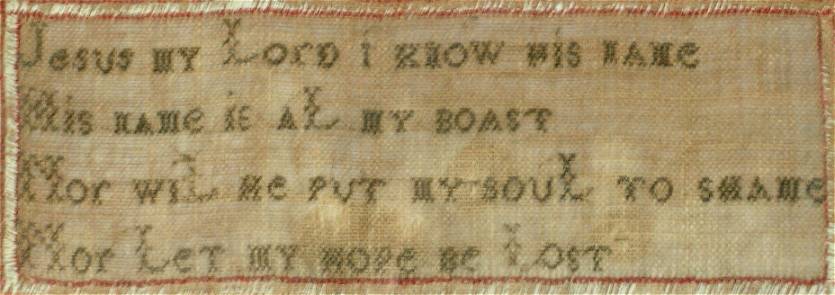 Jesus my Lord i know his name
His name is aL my boast
Nor wiL he put my souL to shame
Nor Let my hope be Lost